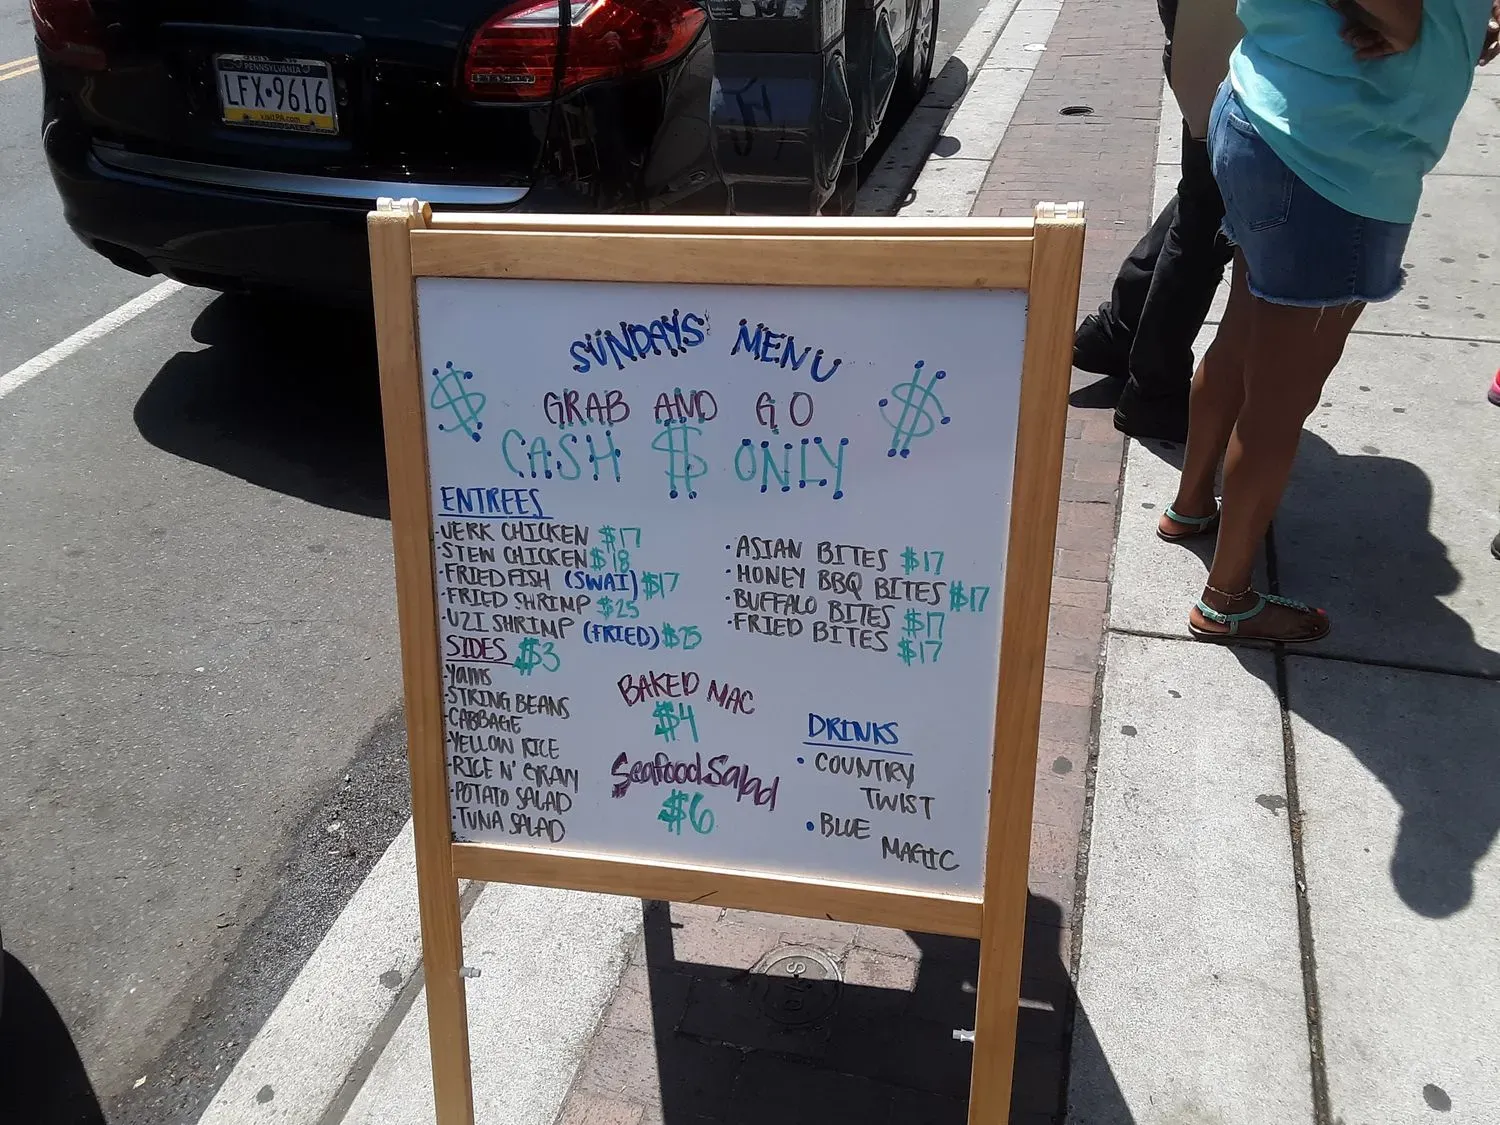 PENNSYLVANIA
LFX•9616
SUNDAYS' MENU
GRAB AND GO
$ CASH $ ONLY $
ENTREES
·JERK CHICKEN $17
·STEW CHICKEN $18
·FRIED FISH (SWAI) $17
·FRIED SHRIMP $25
·UZI SHRIMP (FRIED) $25
·ASIAN BITES $17
·HONEY BBQ BITES $17
·BUFFALO BITES $17
·FRIED BITES $17
SIDES $3
·Yams
·STRING BEANS
·CABBAGE
·YELLOW RICE
·RICE N' GRAVY
·POTATO SALAD
·TUNA SALAD
BAKED MAC
$4
Seafood Salad
$6
DRINKS
• COUNTRY
TWIST
• BLUE
MAGIC